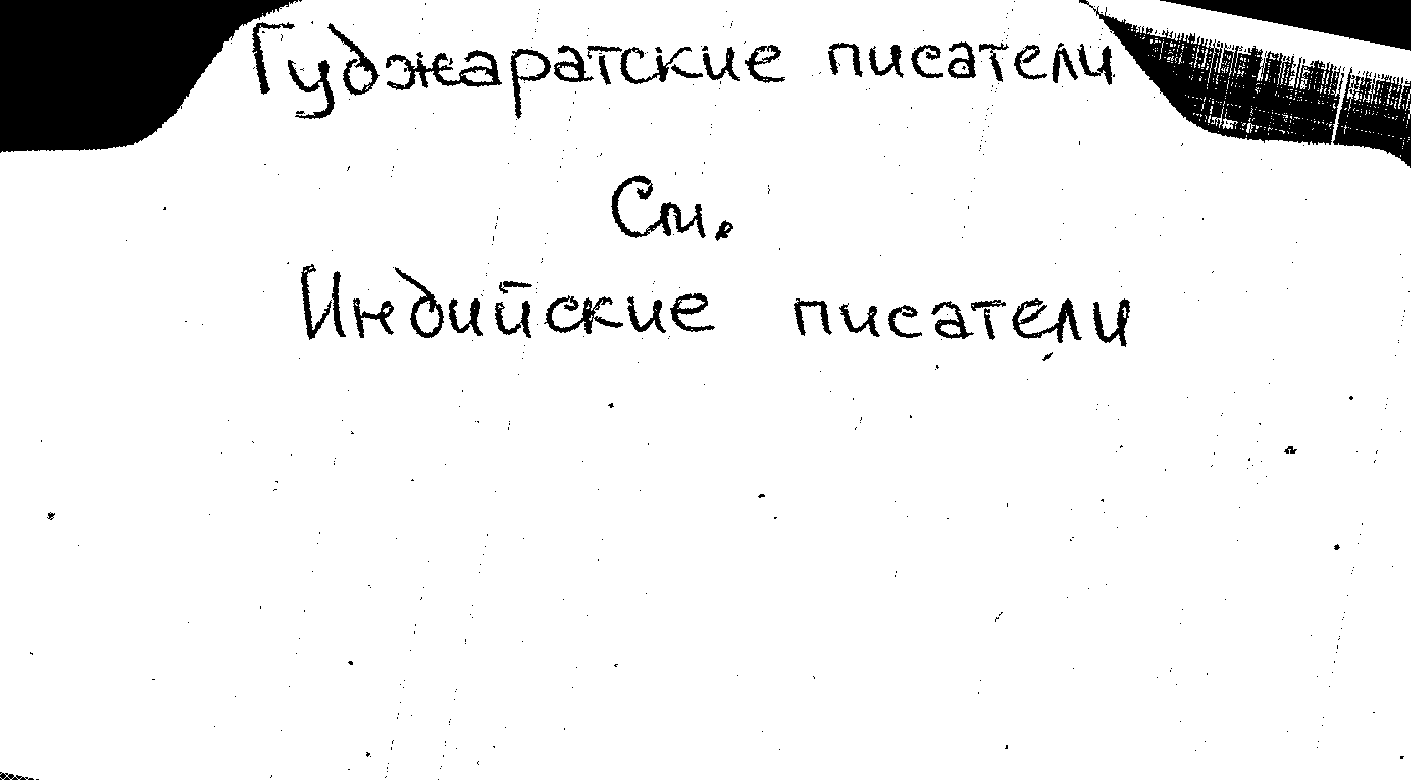 Гуджаратские писатели
См.
Индийские писатели